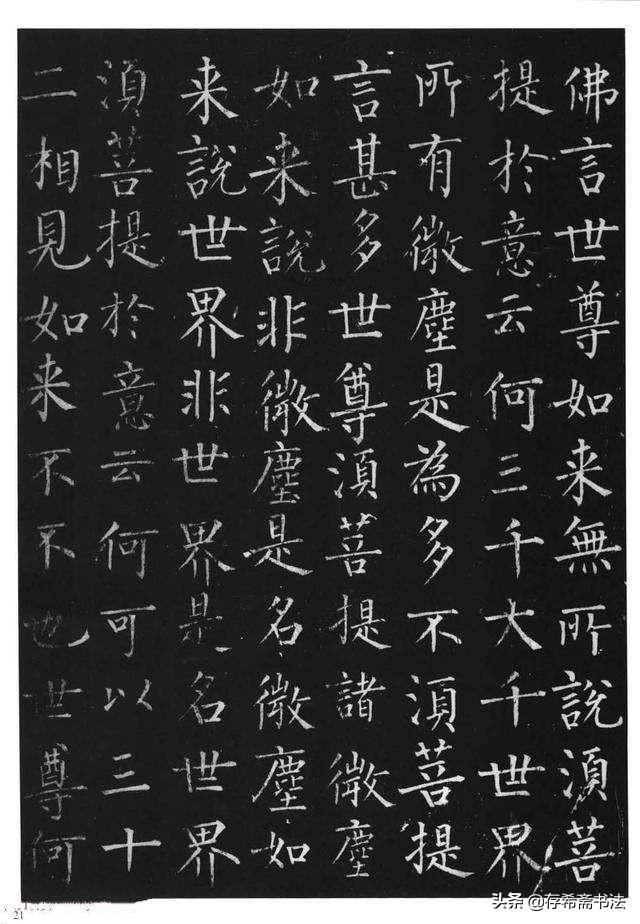 佛言世尊如来無所說湏菩
提於意云何三千大千世界
所有微塵是為多不湏菩提
言甚多世尊湏菩提諸微塵
如来說非微塵是名微塵如
来說世界非世界是名世界
湏菩提於意云何可以三十
二相見如来不不也世尊何
21
头条@存希斋书法